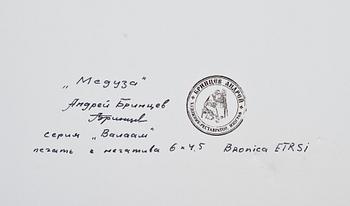 „Медуза"
Андрей Бринцев
Бринцев
серия „Валаам"
печать с негатива 6×4,5 Bronica ETRSi
БРИНЦЕВ АНДРЕЙ